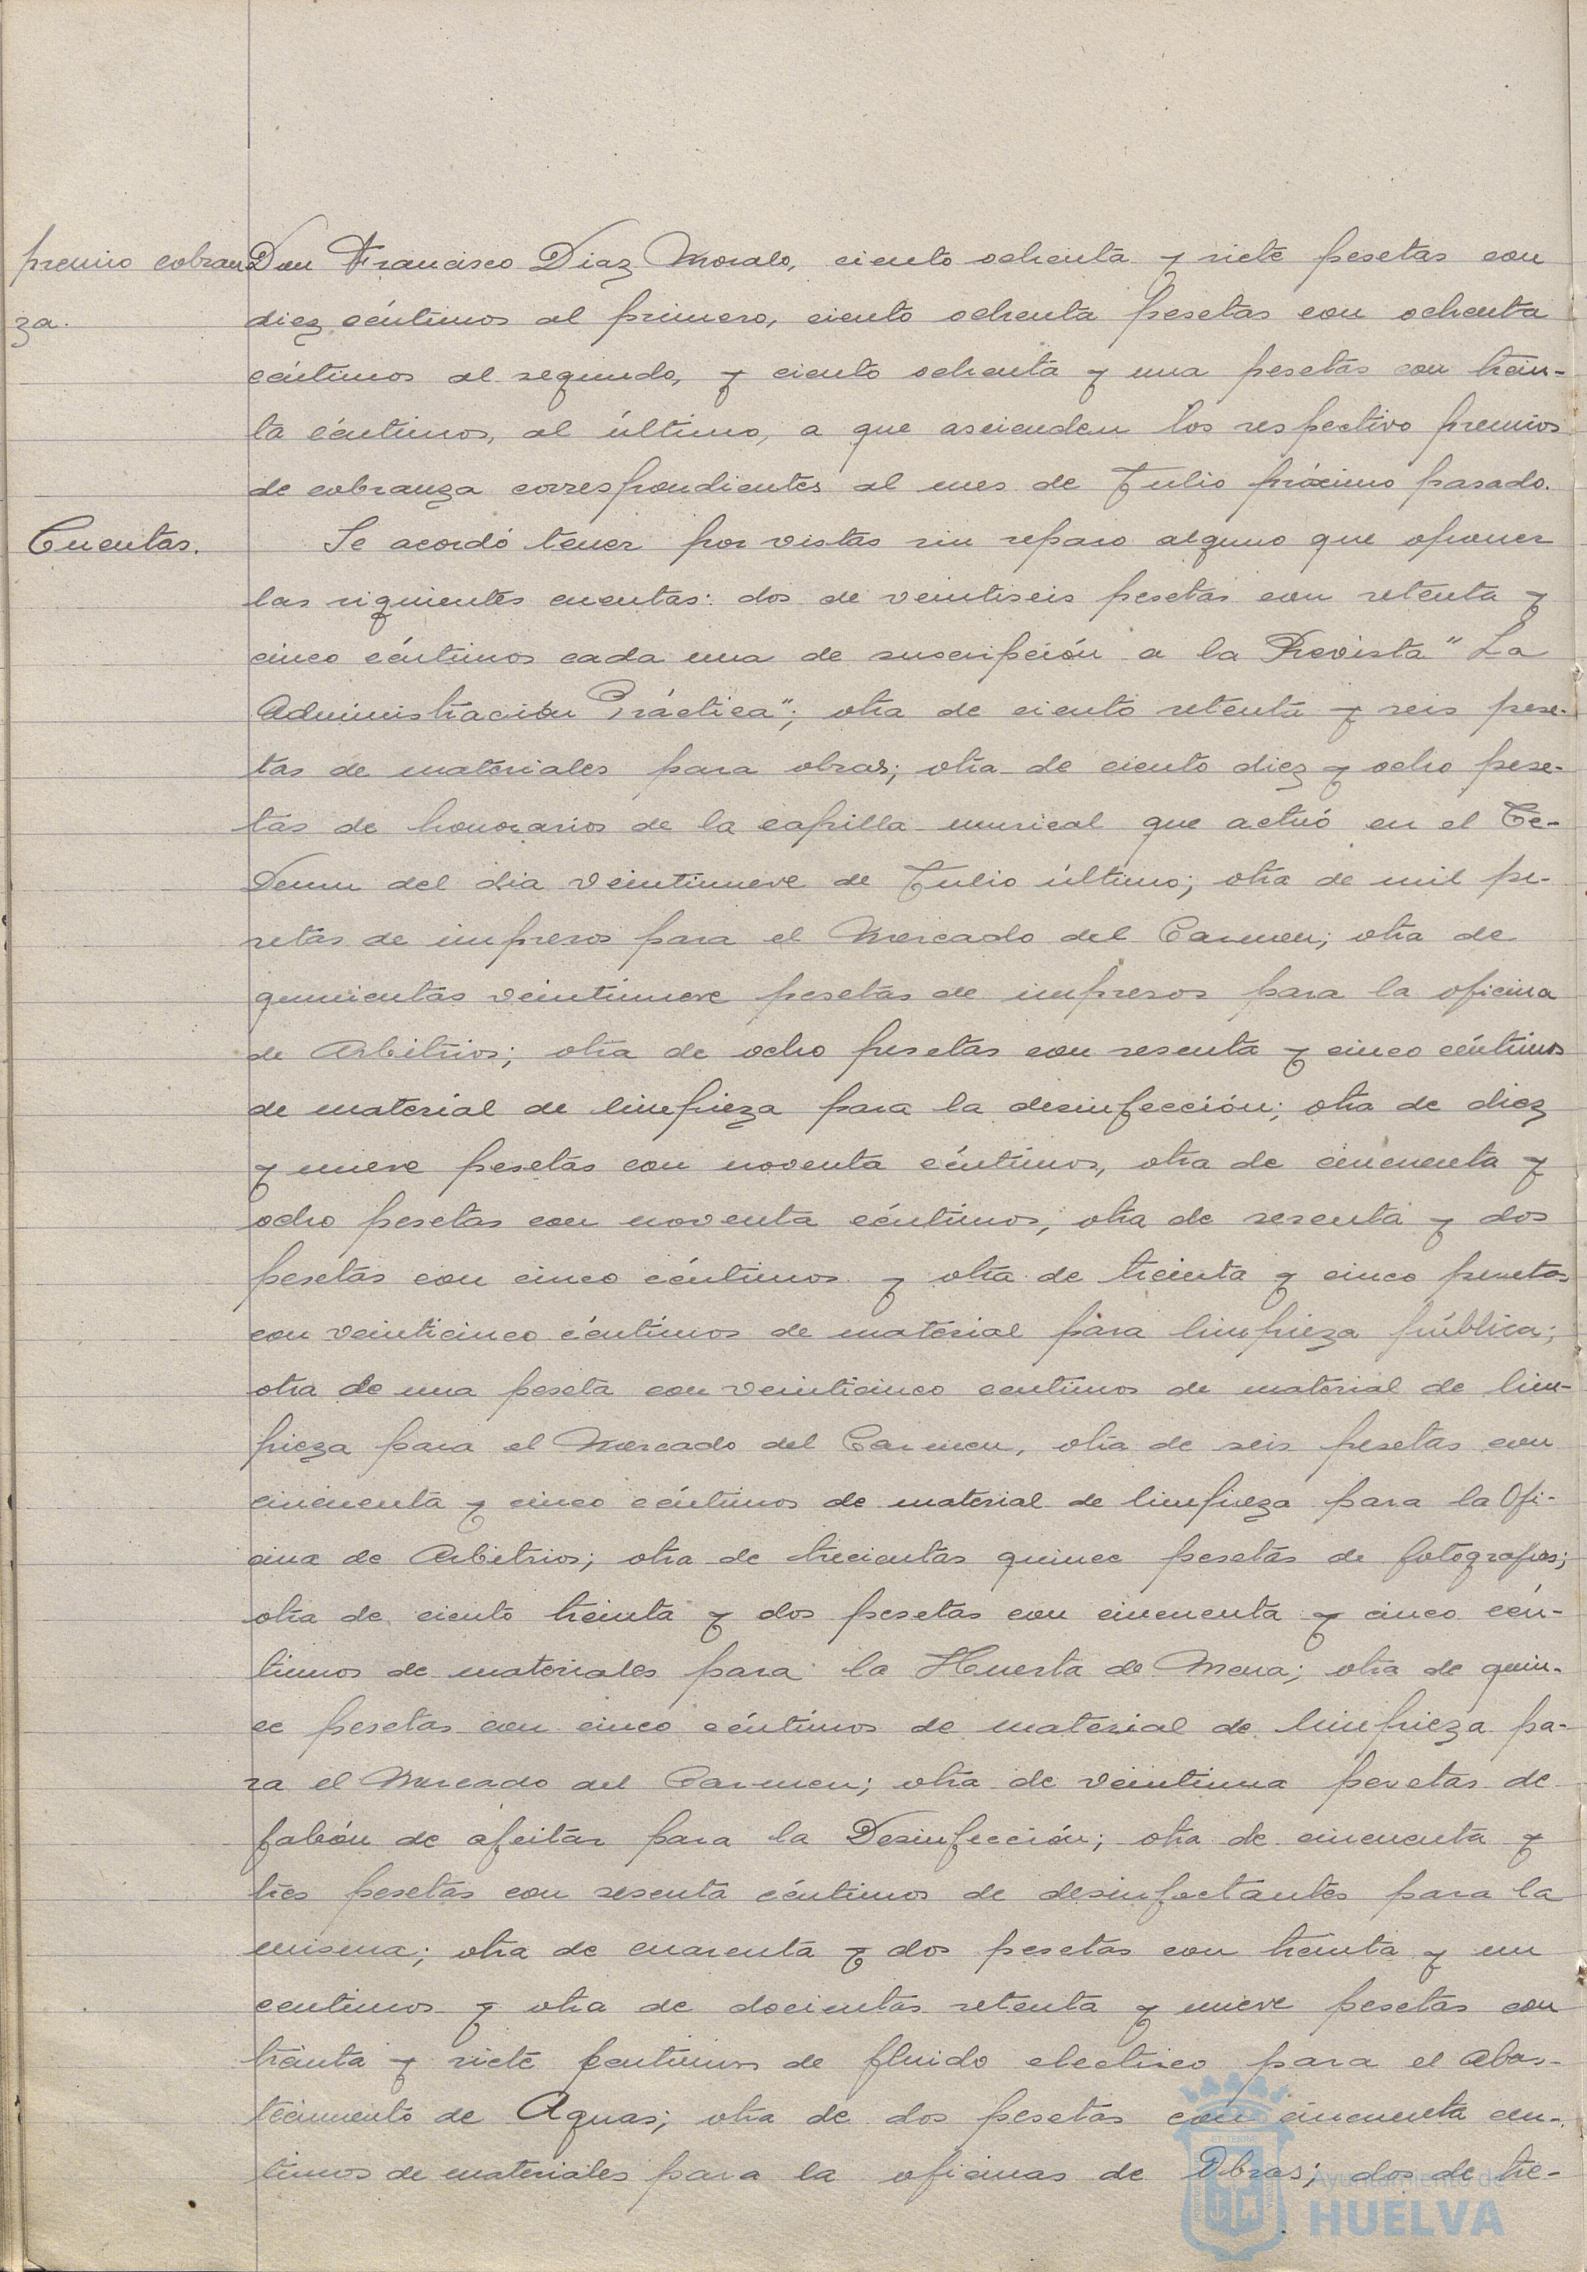 premio cobran
za.
Don Francisco Diaz Moralo, ciento ochenta y siete pesetas con
diez céntimos al primero, ciento ochenta pesetas con ochenta
céntimos al segundo, y ciento ochenta y una pesetas con trein-
ta céntimos, al último, a que ascienden los respectivo premios
de cobranza correspondientes al mes de Julio próximo pasado.
Cuentas.
Se acordó tener por vistas sin reparo alguno que oponer
las siguientes cuentas: dos de veintiseis pesetas con setenta y
cinco céntimos cada una de suscripción a la Revista "La
Administración Práctica"; otra de ciento setenta y seis pese-
tas de materiales para obras; otra de ciento diez y ocho pese-
tas de honorarios de la capilla musical que actuó en el Te-
Deum del dia veintinueve de Julio último; otra de mil pe-
setas de impresos para el Mercado del Carmen; otra de
quinientas veintinueve pesetas de impresos para la oficina
de Arbitrios; otra de ocho pesetas con sesenta y cinco céntimos
de material de limpieza para la desinfección; otra de diez
y nueve pesetas con noventa céntimos, otra de cincuenta y
ocho pesetas con noventa céntimos, otra de sesenta y dos
pesetas con cinco céntimos y otra de treinta y cinco pesetas
con veinticinco céntimos de material para limpieza pública;
otra de una peseta con veinticinco centimos de material de lim-
pieza para el Mercado del Carmen, otra de seis pesetas con
cincuenta y cinco céntimos de material de limpieza para la Ofi-
cina de Arbitrios; otra de trecientas quince pesetas de fotografias;
otra de ciento treinta y dos pesetas con cincuenta y cinco cén-
timos de materiales para la Huerta de Mena; otra de quin-
ce pesetas con cinco céntimos de material de limpieza pa-
ra el Mercado del Carmen; otra de veintiuna pesetas de
jabón de afeitar para la Desinfección; otra de cincuenta y
tres pesetas con sesenta céntimos de desinfectantes para la
misma; otra de cuarenta y dos pesetas con treinta y un
centimos y otra de docientas setenta y nueve pesetas con
treinta y siete centimos de fluido electrico para el Abas-
tecimiento de Aguas; otra de dos pesetas con cincuenta cen-
timos de materiales para la oficinas de Obras; dos de tre-
Ayuntamiento de
HUELVA